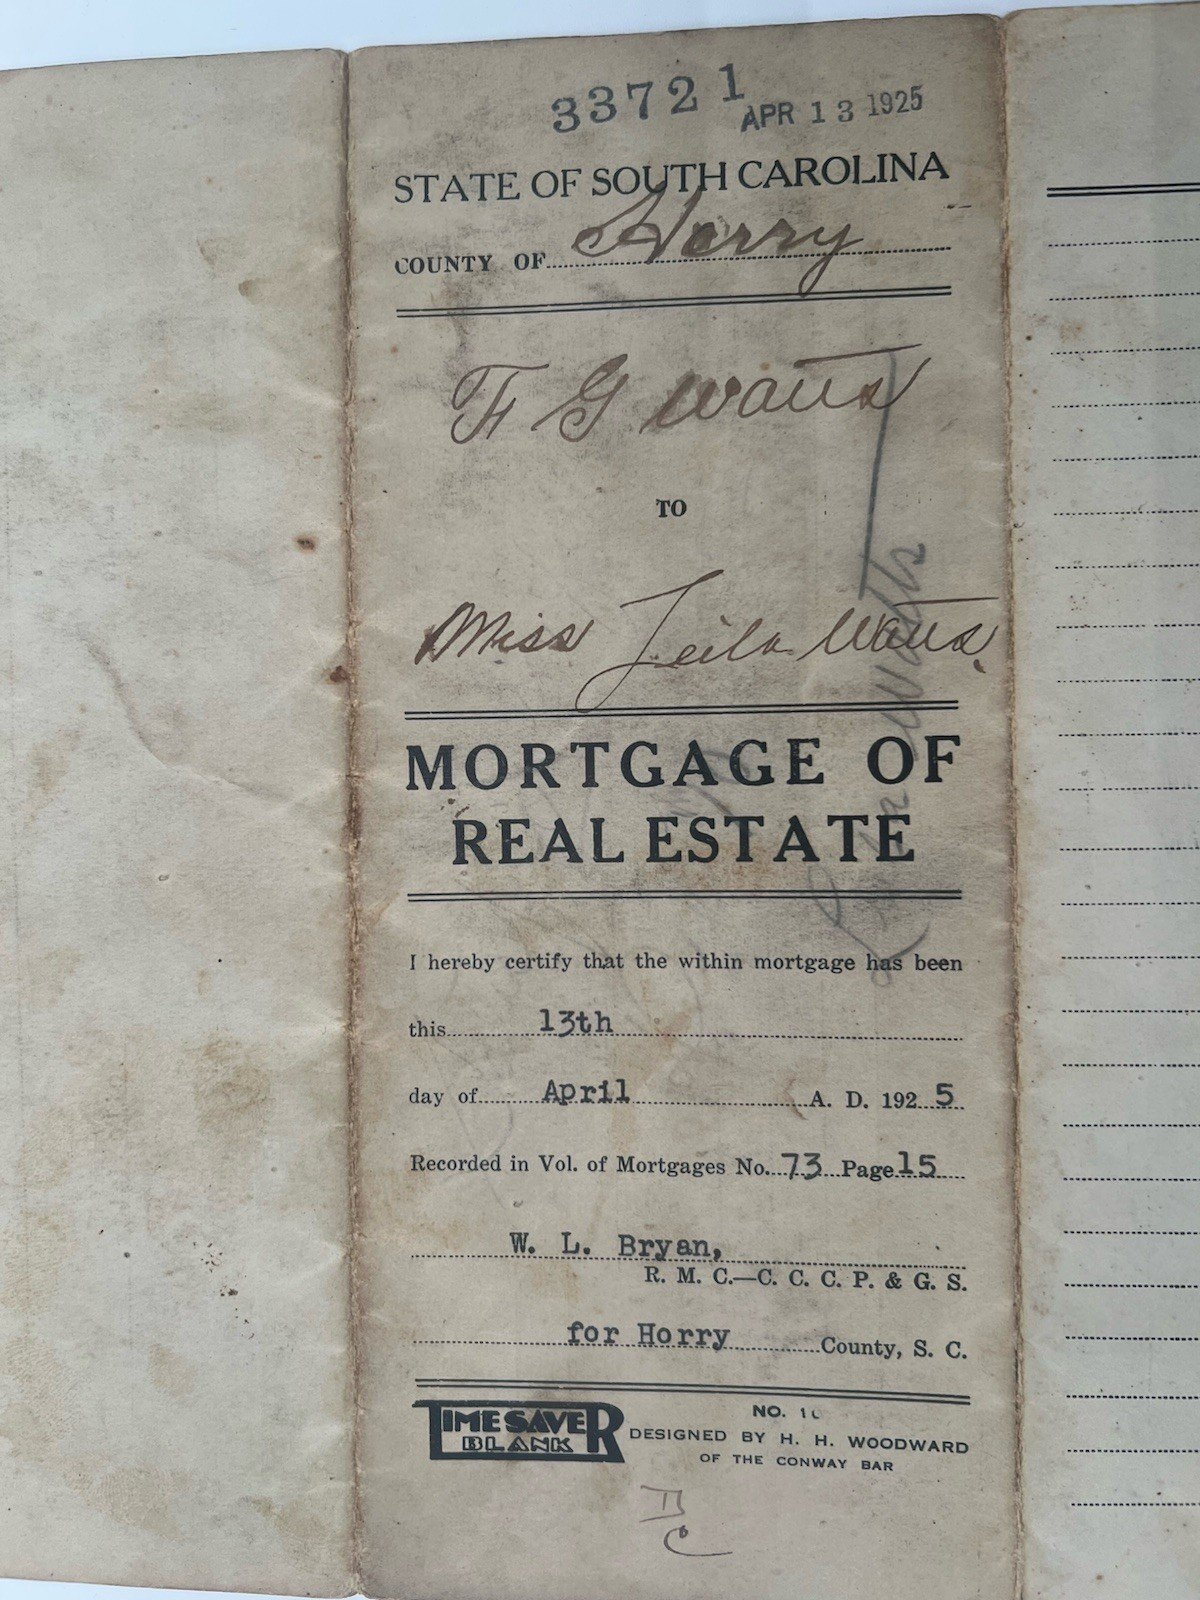 33721
APR 13 1925
STATE OF SOUTH CAROLINA
COUNTY OF Horry
F G Watts
TO
Miss Leila Watts
MORTGAGE OF
REAL ESTATE
I hereby certify that the within mortgage has been
this 13th
day of April A. D. 1925
Recorded in Vol. of Mortgages No. 73 Page 15
W. L. Bryan,
R. M. C.—C. C. C. P. & G. S.
for Horry County, S. C.
TIME SAVER
BLANK
NO.
DESIGNED BY H. H. WOODWARD
OF THE CONWAY BAR
Watts